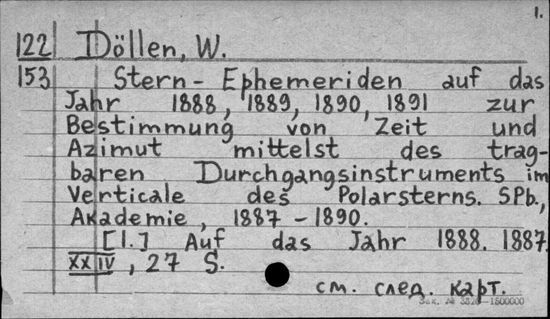 1.
122 Döllen, W.
153 Stern - Ephemeriden auf das
Jahr 1888, 1889, 1890, 1891 zur
Bestimmung von Zeit und
Azimut mittelst des trag-
baren Durchgangsinstruments im
Verticale des Polarsterns. SPb.,
Akademie, 1887 - 1890.
[1.] Auf das Jahr 1888. 1887.
XXIV, 27 S.
см. след. карт.
Зак. № 3826—1500000